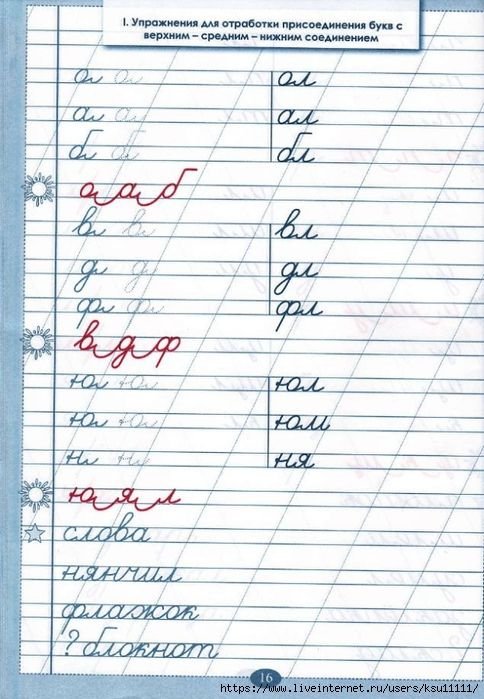 I. Упражнения для отработки присоединения букв с
верхним – средним – нижним соединением
ол ол ол
ал ал ал
бл бл бл
о а б
вл вл вл
дл дл дл
фл фл фл
в д ф
юл юл юл
юл юл юм
ня
ю я л
слова
нянчил
флажок
? блокнот
16
https://www.liveinternet.ru/users/ksu11111/